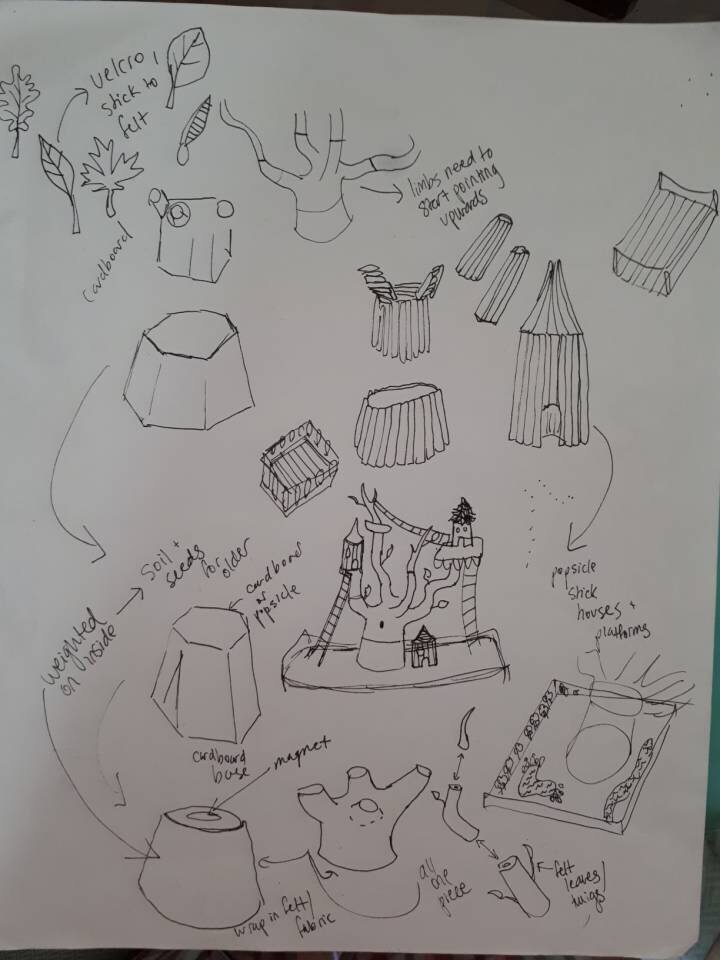 velcro,
stick to
felt
limbs need to
start pointing
upwards
cardboard
soil +
seeds
for
older
cardboard
or
popsicle
popsicle
stick
houses +
platforms
weighted
on inside
cardboard
base
magnet
all
one
piece
felt
leaves/
twigs
wrap in felt/
fabric